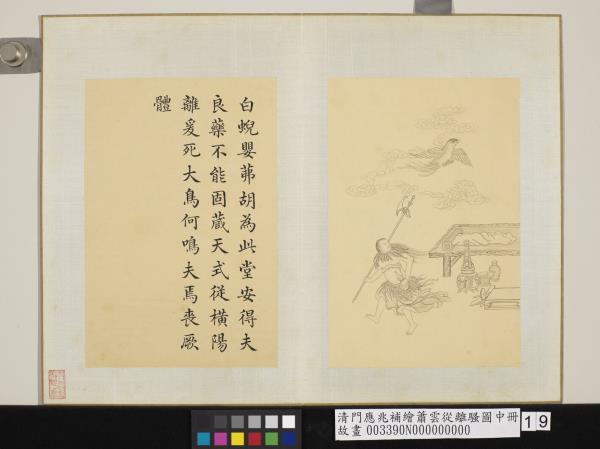 白蜺嬰茀胡為此堂安得夫
良藥不能固藏天式從橫陽
離爰死大鳥何鳴夫焉喪厥
體
清門應兆補繪蕭雲從離騷圖中冊
故畫 003390N000000000
19